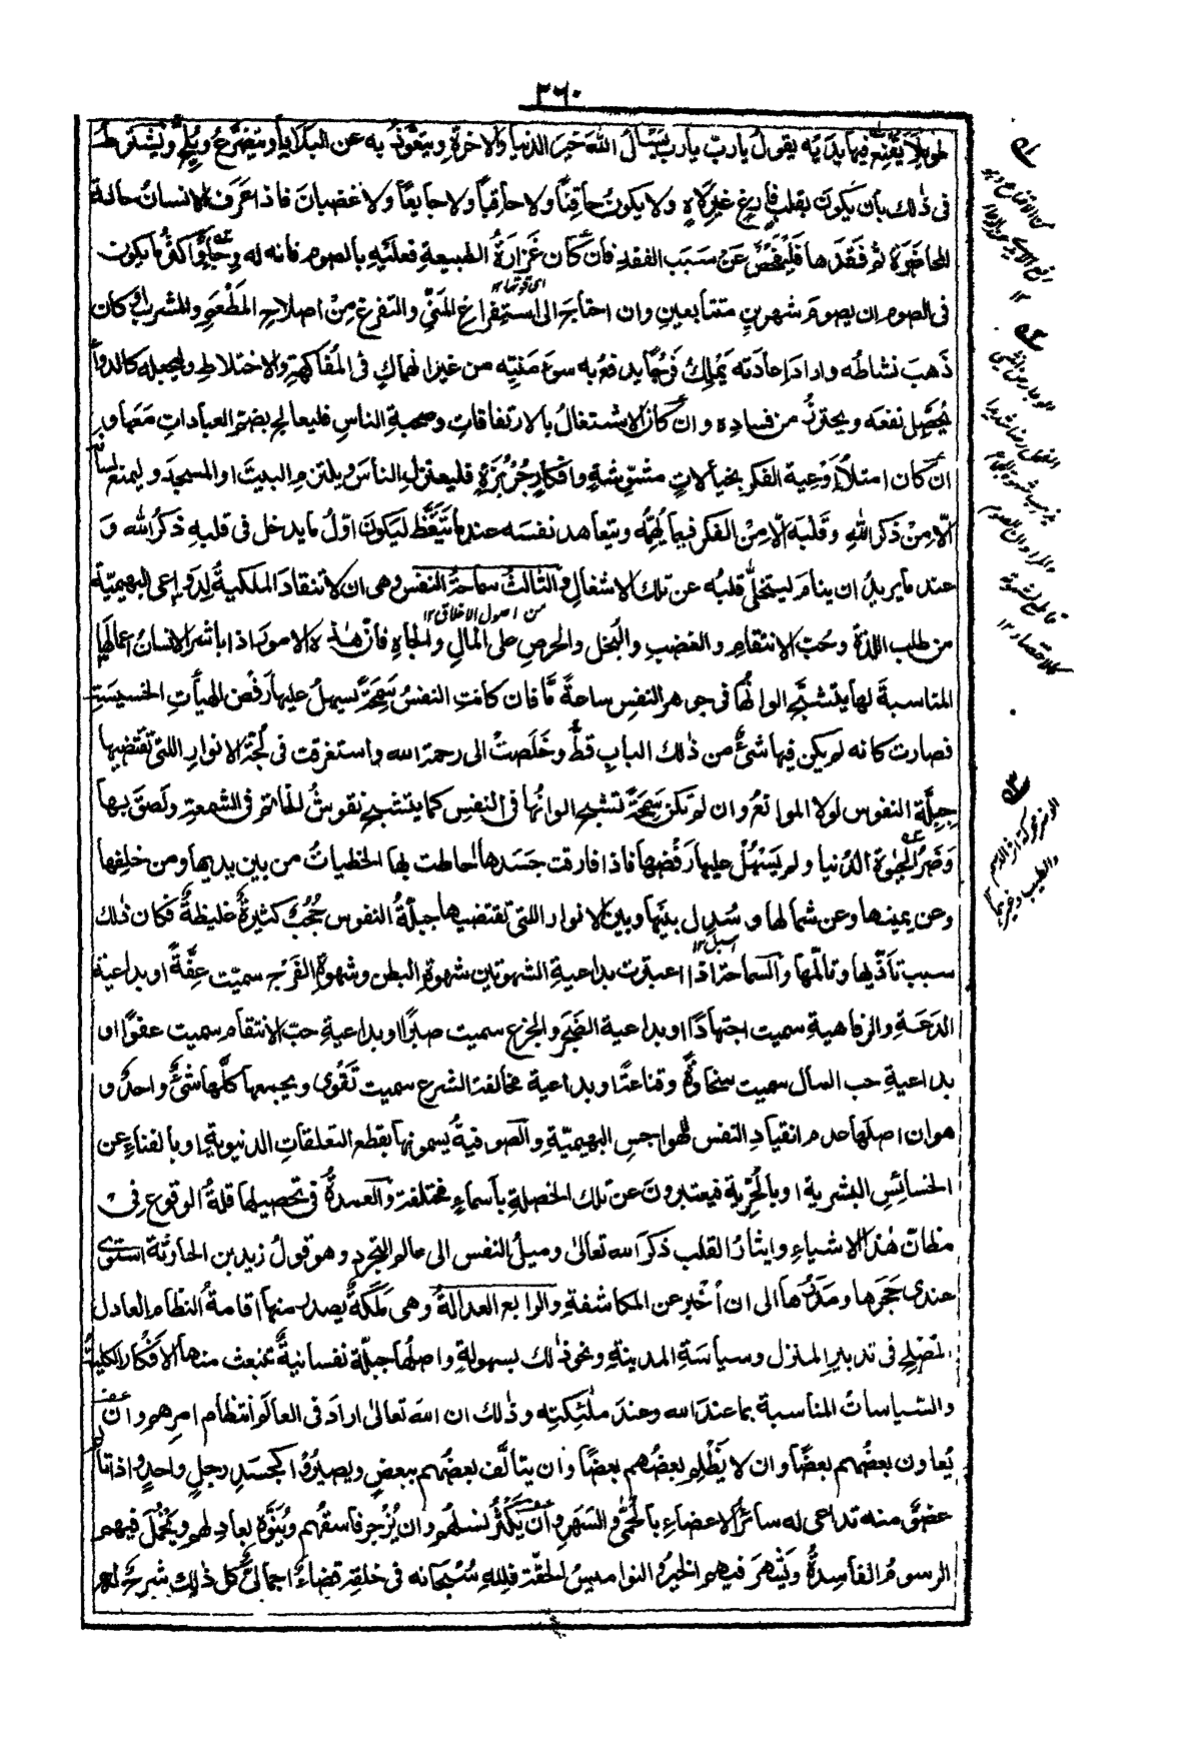 ٣٦٠
طويلا يُقنِع فيها يديه يقول يا ربّ يا ربّ يسأل الله خير الدنيا والآخرة ويتعوّذ به عن البلايا ويتضرّع ويُلِحّ ويُشترط
فى ذلك بأن يكون بقلب فارغ غير لاهٍ ولا يكون حاقناً ولا حاقباً ولا جايعاً ولا غضبان فاذا عرف الانسان حالة
المحاضرة ثم فقدها فليفحص عن سبب الفقد فان كان غزارة الطبيعة فعليه بالصوم فانه له وجاء واكثر ما يكون
اى قوتها ١٢
فى الصوم ان يصوم شهرين متتابعين وان احتاج الى استفراغ المنى والتفرغ من اصلاح المطعم والمشرب او كان
ذهب نشاطه واراد اعادته يملك فرجاً يدفع به سوء منيّه من غير انهماك فى المفاكهة والاختلاط وليجعله كالدواء
يحصّل نفعه ويحترز من فساده وان كان الاشتغال بالارتفاقات وصحبة الناس فليعالج بضم العبادات معها و
ان كان امتلأ اوعية الفكر بخيالات مشوّشة وافكار جُربُزة فليعتزل الناس ويلتزم البيت او المسجد وليمنع لسانه
الّا من ذكر الله وقلبه الّا من الفكر فيما يُهمّه ويتعاهد نفسه عند ما يتيقّظ ليكون اوّل ما يدخل فى قلبه ذكر الله و
عند ما يريد ان ينام ليتخلّى قلبه عن تلك الاشغال والثالث سماحة النفس وهى ان لا تنقاد الملكية لدواعى البهيميّة
من اصول الاخلاق ١٢
من طلب اللذة وحبّ الانتقام والغضب والبخل والحرص على المال والجاه فانّ هذه الامور اذا باشر الانسان اعمالها
المناسبة لها يتشبّح الوانُها فى جوهر النفس ساعةً مّا فان كانت النفس سمحةً يسهل عليها رفض الهيأت الخسيسة
فصارت كانه لم يكن فيها شئ من ذلك الباب قطّ وخلصت الى رحمة الله واستغرقت فى لُجّة الانوار اللتى تقتضيها
جبلّة النفوس لولا الموانع وان لم تكن سمحةً تشبح الوانُها فى النفس كما يتشبح نقوش الخاتم فى الشمعة ولصق بها
وضرُ الحيوة الدنيا ولم يسهُل عليها رفضها فاذا فارقت جسدها احاطت بها الخطيات من بين يديها ومن خلفها
وعن يمينها وعن شمالها وسُدِل بينها وبين الانوار اللتى تقتضيها جبلّة النفوس حُجُب كثيرة غليظة فكان ذلك
اسبل ١٢
سبب تأذّيها وتألّمها والسماحة اذا اعتبرت بداعية الشهوتين شهوة البطن وشهوة الفرج سميت عفّةً او بداعية
الدعة والرفاهية سميت اجتهاداً او بداعية الضجر والجزع سميت صبراً او بداعية حبّ الانتقام سميت عفواً او
بداعية حب المال سميت سخاوةً وقناعتاً او بداعية مخالفة الشرع سميت تقوى ويجمعها كلّها شئ واحد و
هو ان اصلها عدم انقياد النفس لهواجس البهيميّة والصوفية يسمونها بقطع التعلقات الدنيوية او بالفناء عن
الخسائس البشرية او بالحُرّية فيعبرون عن تلك الخصلة بأسماء مختلفة والعمدة فى تحصيلها قلة الوقوع فى
مظانّ هذه الاشياء وايثار القلب ذكر الله تعالى وميل النفس الى عالم التجرد وهو قول زيد بن الحارثة استوى
عندى حجرها ومدرها الى ان اخبر عن المكاشفة والرابع العدالة وهى ملكة يصدر منها اقامة النظام العادل
المصلح فى تدبير المنزل وسياسة المدينة ونحو ذلك بسهولة واصلها جبلّة نفسانية تنبعث منها الافكار الكلية
والسياسات المناسبة بما عند الله وعند ملئكته وذلك ان الله تعالى اراد فى العالم انتظام امرهم وان
يُعاون بعضهم بعضاً وان لا يظلم بعضهم بعضاً وان يتألّف بعضهم ببعض ويصيروا كجسد رجل واحد اذا تألم
عضو منه تداعى له سائر الاعضاء بالحمّى والسهر وان يكثر نسلهم وان يُزجر فاسقهم ويُنوّه بعادلهم ويُخمل فيهم
الرسوم الفاسدة ويشهر فيهم الخير والنواميس الحقّة فلله سبحانه فى خلقه قضاء اجمالىّ كل ذلك شرح له